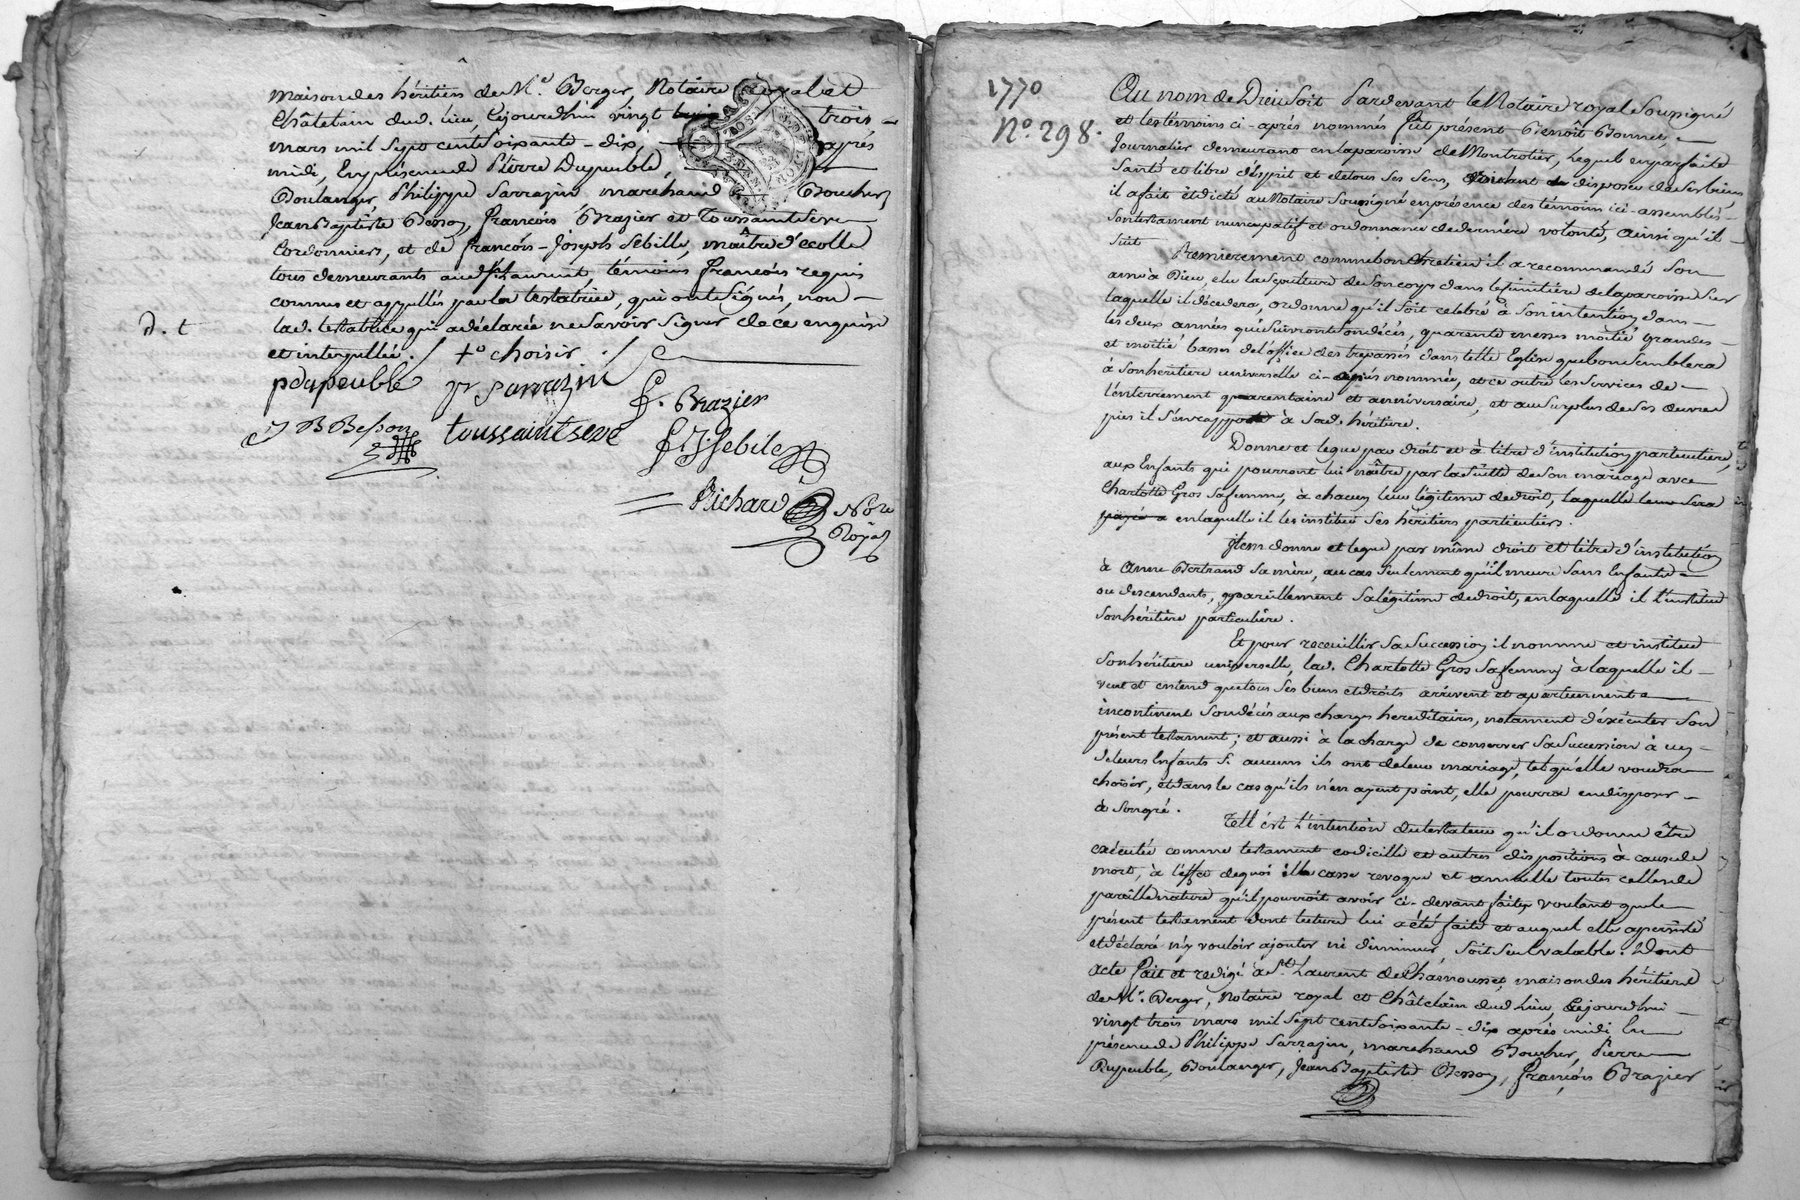 maison des héritiers de Mr. Berger, Notaire royal et
Châtelain dud. lieu, Cejourdhui vingt trois
mars mil sept cent soixante-dix, après
midi, En présence de Pierre Dupeuble,
Boulanger, Philippe Sarrazin marchand Boucher
Jean Baptiste Besson, François Brazier et Toussaint Seve
Cordonniers, et de françois-Joseph Sebille, maître d'ecolle
tous demeurants aud. St Laurent, témoins françois requis
connus et appellés par la testatrice, qui ont signés, non
lad. testatrice qui a déclarée ne savoir signer de ce enquise
et interpellée. / +° choisir ./
d. t
pdupeuble pr Sarrazin
f. Brazier
J B Besson toussaint seve
f J Sebile
Richard Nore
Royal
1770
No. 298.
Au nom de Dieu soit Pardevant le Notaire royal soussigné
et les témoins ci-après nommés fut présent Benoît Bonnet,
Journalier demeurant en la paroisse de Montrotier, Lequel en parfaite
Santé et libre d'esprit et de tous ses sens, voulant disposer de ses biens
il a fait et dicté au Notaire soussigné en présence des témoins ici-assemblés
son testament nuncupatif et ordonnance de derniére volonté, ainsi qu'il
suit
Premièrement comme bon Chretien il a recommandé son
ame à Dieu, elu la sepulture de son corps dans le cimitière de la paroisse sur
laquelle il décedera, ordonne qu'il soit celebré à son intention dans
les deux années qui suivront son décés, quarente messes moitié grandes
et moitié basses de l'office des trepassés dans telle Eglise que bon semblera
à son héritiere universelle ci-après nommée, et ce outre les services de
l'enterrement quarentaine et anniversaire, et au surplus de ses œuvres
pies il s'en rapporte à sad. héritière.
Donne et legue par droit et à titre d'institution particuliere,
aux Enfants qui pourront lui naître par la suitte de son mariage avec
Charlotte Gros sa femme, à chacun leur légitime de droit, laquelle leur sera
payée en laquelle il les institue ses héritiers particuliers.
Item donne et legue par même droit et titre d'institution
à Anne Bertrand sa mère, au cas seulement qu'il meure sans Enfants
ou descendants, pareillement sa légitime de droit, en laquelle il l'institue
son héritière particulière.
Et pour recueillir sa succession il nomme et institue
son héritiere universelle, lad. Charlotte Gros sa femme à laquelle il
veut et entend que tous ses biens et droits arrivent et apartiennent
incontinent son décés aux charges hereditaires, notament d'éxécuter son
présent testament; et aussi à la charge de conserver sa succession à un
de leurs Enfants si aucuns ils ont de leur mariage, tel qu'elle voudra
choisir, et dans le cas qu'ils n'en ayent point, elle pourra en disposer
à son gré.
Tell est l'intention du testateur qu'il ordonne être
exécutée comme testament codicille et autres dispositions à cause de
mort, à l'effet de quoi elle casse revoque et annulle toutes celles de
pareille nature qu'il pourroit avoir ci-devant faites voulant que le
présent testament dont lecture lui a été faite et auquel elle a persisté
et déclaré n'y vouloir ajouter ni diminuer, soit seul valable. Dont
acte fait et redigé à St. Laurent de Chamousset, maison des héritiers
de Mr. Berger, Notaire royal et Châtelain dud lieu, Cejourdhui
vingt trois mars mil sept cent soixante-dix après midi En
présence de Philippe Sarrazin, marchand Boucher, Pierre
Dupeuble, Boulanger, Jean Baptiste Besson, françois Brazier